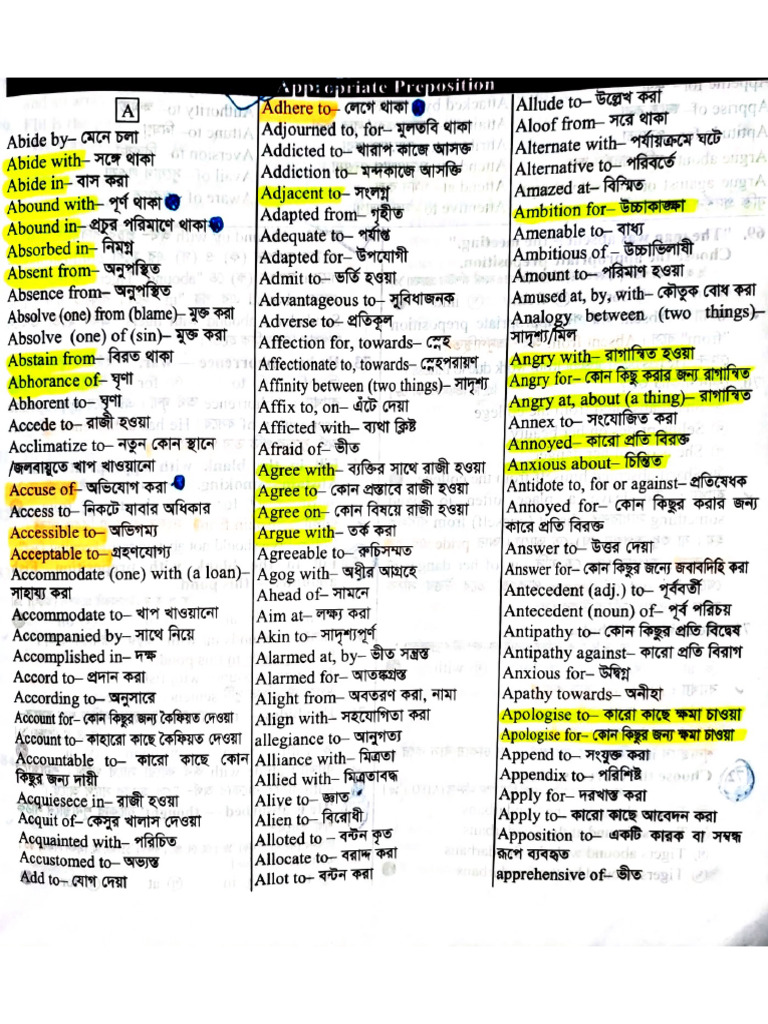 Appropriate Preposition
A
Abide by– মেনে চলা
Abide with– সঙ্গে থাকা
Abide in– বাস করা
Abound with– পূর্ণ থাকা
Abound in– প্রচুর পরিমাণে থাকা
Absorbed in– নিমগ্ন
Absent from– অনুপস্থিত
Absence from– অনুপস্থিত
Absolve (one) from (blame)– মুক্ত করা
Absolve (one) of (sin)– মুক্ত করা
Abstain from– বিরত থাকা
Abhorance of– ঘৃণা
Abhorent to– ঘৃণা
Accede to– রাজী হওয়া
Acclimatize to– নতুন কোন স্থানে
/জলবায়ুতে খাপ খাওয়ানো
Accuse of– অভিযোগ করা
Access to– নিকটে যাবার অধিকার
Accessible to– অভিগম্য
Acceptable to– গ্রহণযোগ্য
Accommodate (one) with (a loan)–
সাহায্য করা
Accommodate to– খাপ খাওয়ানো
Accompanied by– সাথে নিয়ে
Accomplished in– দক্ষ
Accord to– প্রদান করা
According to– অনুসারে
Account for– কোন কিছুর জন্য কৈফিয়ত দেওয়া
Account to– কাহারো কাছে কৈফিয়ত দেওয়া
Accountable to– কারো কাছে কোন
কিছুর জন্য দায়ী
Acquiesece in– রাজী হওয়া
Acquit of– কেসুর খালাস দেওয়া
Acquainted with– পরিচিত
Accustomed to– অভ্যস্ত
Add to– যোগ দেয়া
Adhere to– লেগে থাকা
Adjourned to, for– মুলতবি থাকা
Addicted to– খারাপ কাজে আসক্ত
Addiction to– মন্দকাজে আসক্তি
Adjacent to– সংলগ্ন
Adapted from– গৃহীত
Adequate to– পর্যাপ্ত
Adapted for– উপযোগী
Admit to– ভর্তি হওয়া
Advantageous to– সুবিধাজনক
Adverse to– প্রতিকূল
Affection for, towards– স্নেহ
Affectionate to, towards– স্নেহপরায়ণ
Affinity between (two things)– সাদৃশ্য
Affix to, on– এঁটে দেয়া
Afficted with– ব্যথা ক্লিষ্ট
Afraid of– ভীত
Agree with– ব্যক্তির সাথে রাজী হওয়া
Agree to– কোন প্রস্তাবে রাজী হওয়া
Agree on– কোন বিষয়ে রাজী হওয়া
Argue with– তর্ক করা
Agreeable to– রুচিসম্মত
Agog with– অধীর আগ্রহে
Ahead of– সামনে
Aim at– লক্ষ্য করা
Akin to– সাদৃশ্যপূর্ণ
Alarmed at, by– ভীত সন্ত্রস্ত
Alarmed for– আতঙ্কগ্রস্ত
Alight from– অবতরণ করা, নামা
Align with– সহযোগিতা করা
allegiance to– আনুগত্য
Alliance with– মিত্রতা
Allied with– মিত্রতাবদ্ধ
Alive to– জ্ঞাত
Alien to– বিরোধী
Alloted to – বন্টন কৃত
Allocate to– বরাদ্দ করা
Allot to– বন্টন করা
Allude to– উল্লেখ করা
Aloof from– সরে থাকা
Alternate with– পর্যায়ক্রমে ঘটে
Alternative to– পরিবর্তে
Amazed at– বিস্মিত
Ambition for– উচ্চাকাঙ্ক্ষা
Amenable to– বাধ্য
Ambitious of– উচ্চাভিলাষী
Amount to– পরিমাণ হওয়া
Amused at, by, with– কৌতুক বোধ করা
Analogy between (two things)–
সাদৃশ্য/মিল
Angry with– রাগান্বিত হওয়া
Angry for– কোন কিছু করার জন্য রাগান্বিত
Angry at, about (a thing)– রাগান্বিত
Annex to– সংযোজিত করা
Annoyed– কারো প্রতি বিরক্ত
Anxious about– চিন্তিত
Antidote to, for or against– প্রতিষেধক
Annoyed for– কোন কিছুর করার জন্য
কারে প্রতি বিরক্ত
Answer to– উত্তর দেয়া
Answer for– কোন কিছুর জন্যে জবাবদিহি করা
Antecedent (adj.) to– পূর্ববর্তী
Antecedent (noun) of– পূর্ব পরিচয়
Antipathy to– কোন কিছুর প্রতি বিদ্বেষ
Antipathy against– কারো প্রতি বিরাগ
Anxious for– উদ্বিগ্ন
Apathy towards– অনীহা
Apologise to– কারো কাছে ক্ষমা চাওয়া
Apologise for– কোন কিছুর জন্য ক্ষমা চাওয়া
Append to– সংযুক্ত করা
Appendix to– পরিশিষ্ট
Apply for– দরখাস্ত করা
Apply to– কারো কাছে আবেদন করা
Apposition to– একটি কারক বা সম্বন্ধ
রূপে ব্যবহৃত
apprehensive of– ভীত